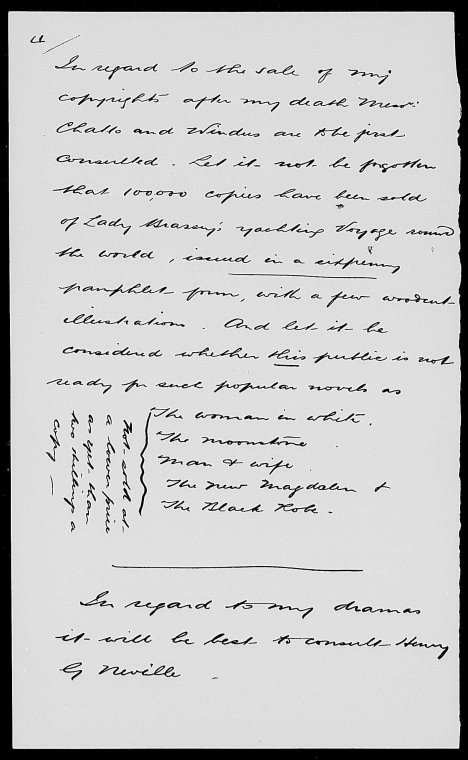 4/
In regard to the sale of my
copyrights after my death Messrs:
Chatto and Windus are to be first
consulted. Let it not be forgotten
that 100,000 copies have been sold
of Lady Brassey's yachting Voyage round
the world, issued in a sixpenny
pamphlet form, with a few woodcut
illustrations. And let it be
considered whether this public is not
ready for such popular novels as
The woman in white.
The moonstone
Man & wife
The New Magdalen &
The Black Robe.
Not sold at
a lower price
as yet than
two shillings a
copy —
In regard to my dramas
it will be best to consult Henry
G Neville